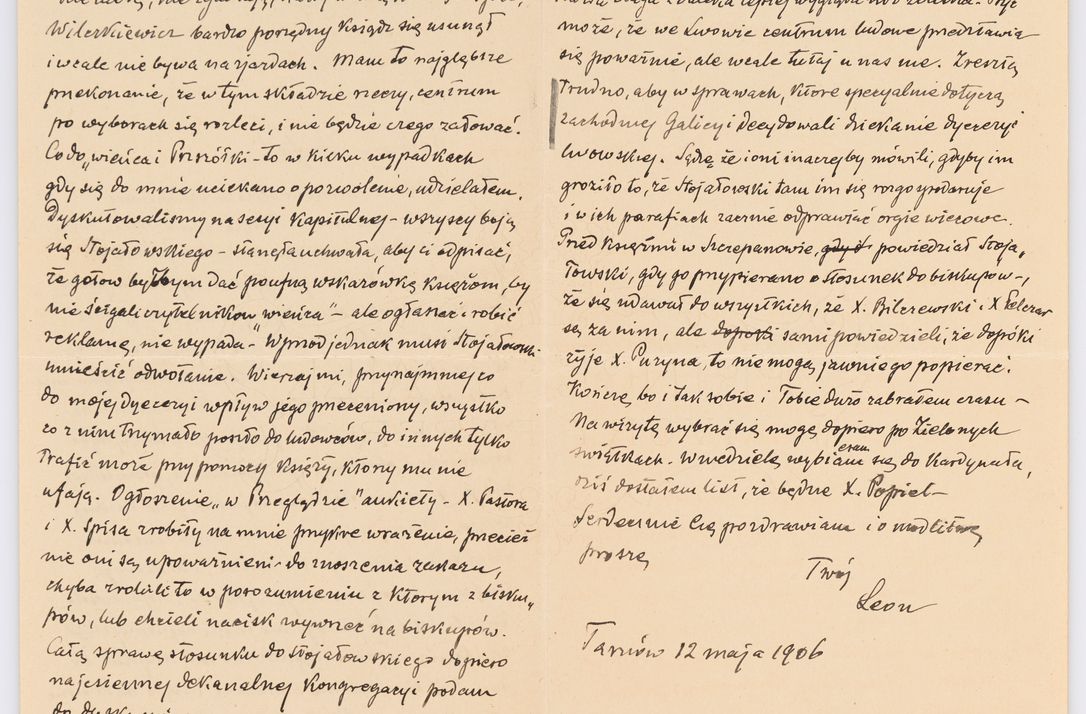 Wilczkiewicz bardzo porządny Ksiądz się usunął
i wcale nie bywa na zjazdach. Mam to najgłębsze
przekonanie, że w tym składzie rzeczy, centrum
po wyborach się rozleci, i nie będzie czego żałować.
Co do „wieńca i Pszczółki – to w kilku wypadkach
gdy się do mnie uciekano o pozwolenie, udzielałem.
Dyskutowaliśmy na sesyi Kapitulnej – wszyscy boją
się Stojałowskiego – stanęła uchwała, aby ci odpisać,
że gotów byłbym dać poufną wskazówkę księżom, by
nie ścigali czytelników „wieńca" – ale ogłaszać i robić
reklamę, nie wypada – Wprzód jednak musi Stojałowski
umieścić odwołanie. Wierzaj mi, przynajmniej co
do mojej dyecezyi wpływ jego przeceniony, wszystko
co z nim trzymało poszło do ludowców, do innych tylko
trafić może przy pomocy Księży, którzy mu nie
ufają. Ogłoszenie „w Przeglądzie" ankiety – X. Pastora
i X. Spisa zrobiły na mnie przykre wrażenie, przecież
nie oni są upoważnieni do znoszenia zakazu,
chyba zrobili to w porozumieniu z którym z bisku„
pów, lub chcieli nacisk wywrzeć na biskupów.
Całą sprawę stosunku do Stojałowskiego dopiero
na jesiennej dekanalnej Kongregacyi podam
może, że we Lwowie centrum ludowe przedstawia
się poważnie, ale wcale tutaj u nas nie. Zresztą
trudno, aby w sprawach, które specyalnie dotyczą
zachodniej Galicyi decydowali dziekanie dyecezyi
lwowskiej. Sądzę że i oni inaczej by mówili, gdyby im
groziło to, że Stojałowski tam im się rozgospodaruje
i w ich parafiach zacznie odprawiać orgie wiecowe.
Przed Księżmi w Szczepanowie, gdyż powiedział Stoja„
łowski, gdy go przypierano o stosunek do biskupów –,
że się udawał do wszystkich, że X. Bilczewski i X Pelczar
są za nim, ale dopóki sami powiedzieli, że dopóki
żyje X. Puzyna, to nie mogą jawnie go popierać.
Kończę, bo i tak sobie i Tobie dużo zabrałem czasu –
Na wizytę wybrać się mogę dopiero po Zielonych
świątkach. W niedzielę wybieram się do Kardynała,
dziś dostałem list, że będzie X. Popiel –
Serdecznie Cię pozdrawiam i o modlitwę
proszę
Twój
Leon
Tarnów 12 maja 1906